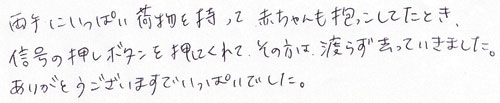 両手にいっぱい荷物を持って赤ちゃんも抱っこしてたとき、
信号の押しボタンを押してくれて、その方は、渡らず去っていきました。
ありがとうございますでいっぱいでした。